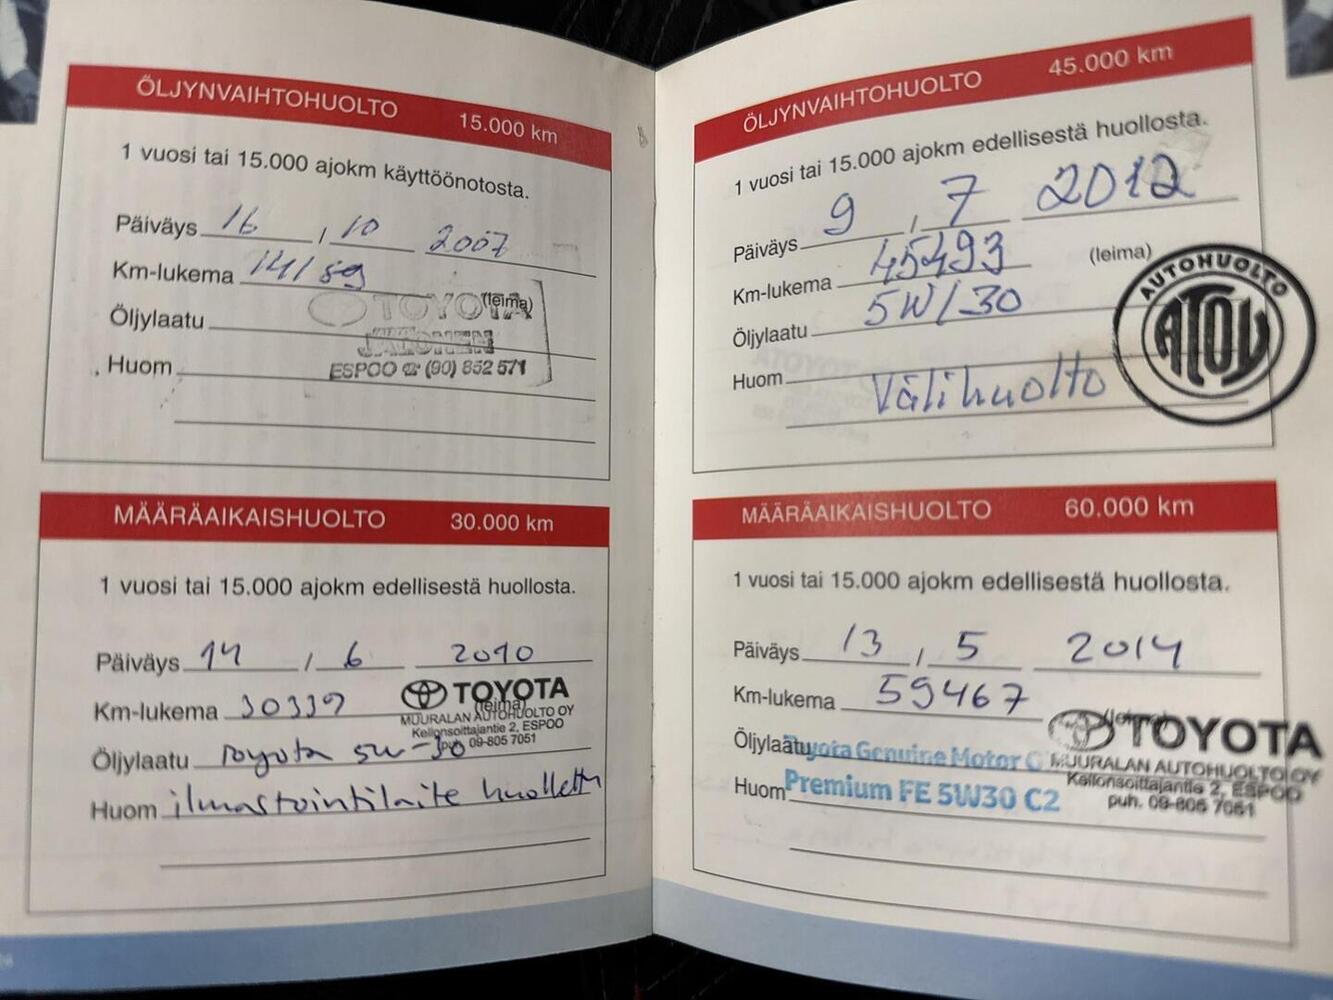 ÖLJYNVAIHTOHUOLTO 15.000 km
1 vuosi tai 15.000 ajokm käyttöönotosta.
Päiväys 16 / 10 2007
Km-lukema 14159
(leima)
TOYOTA
Öljylaatu
JALONEN
Huom
ESPOO ☎ (90) 852 571
MÄÄRÄAIKAISHUOLTO 30.000 km
1 vuosi tai 15.000 ajokm edellisestä huollosta.
Päiväys 14 / 6 2010
Km-lukema 30339
TOYOTA
(leima)
MUURALAN AUTOHUOLTO OY
Kellonsoittajantie 2, ESPOO
puh. 09-805 7051
Öljylaatu Toyota 5w-30
Huom ilmastointilaite huollettu
ÖLJYNVAIHTOHUOLTO 45.000 km
1 vuosi tai 15.000 ajokm edellisestä huollosta.
Päiväys 9 / 7 2012
Km-lukema 45493
(leima)
AUTOHUOLTO
ATOY
Öljylaatu 5W/30
Huom Välihuolto
MÄÄRÄAIKAISHUOLTO 60.000 km
1 vuosi tai 15.000 ajokm edellisestä huollosta.
Päiväys 13 / 5 2014
Km-lukema 59467
(leima)
TOYOTA
MUURALAN AUTOHUOLTO OY
Kellonsoittajantie 2, ESPOO
puh. 09-805 7051
Öljylaatu Toyota Genuine Motor
Huom Premium FE 5W30 C2